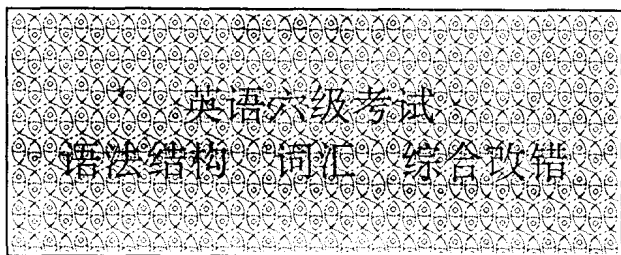 英语六级考试
语法结构 词汇 综合改错